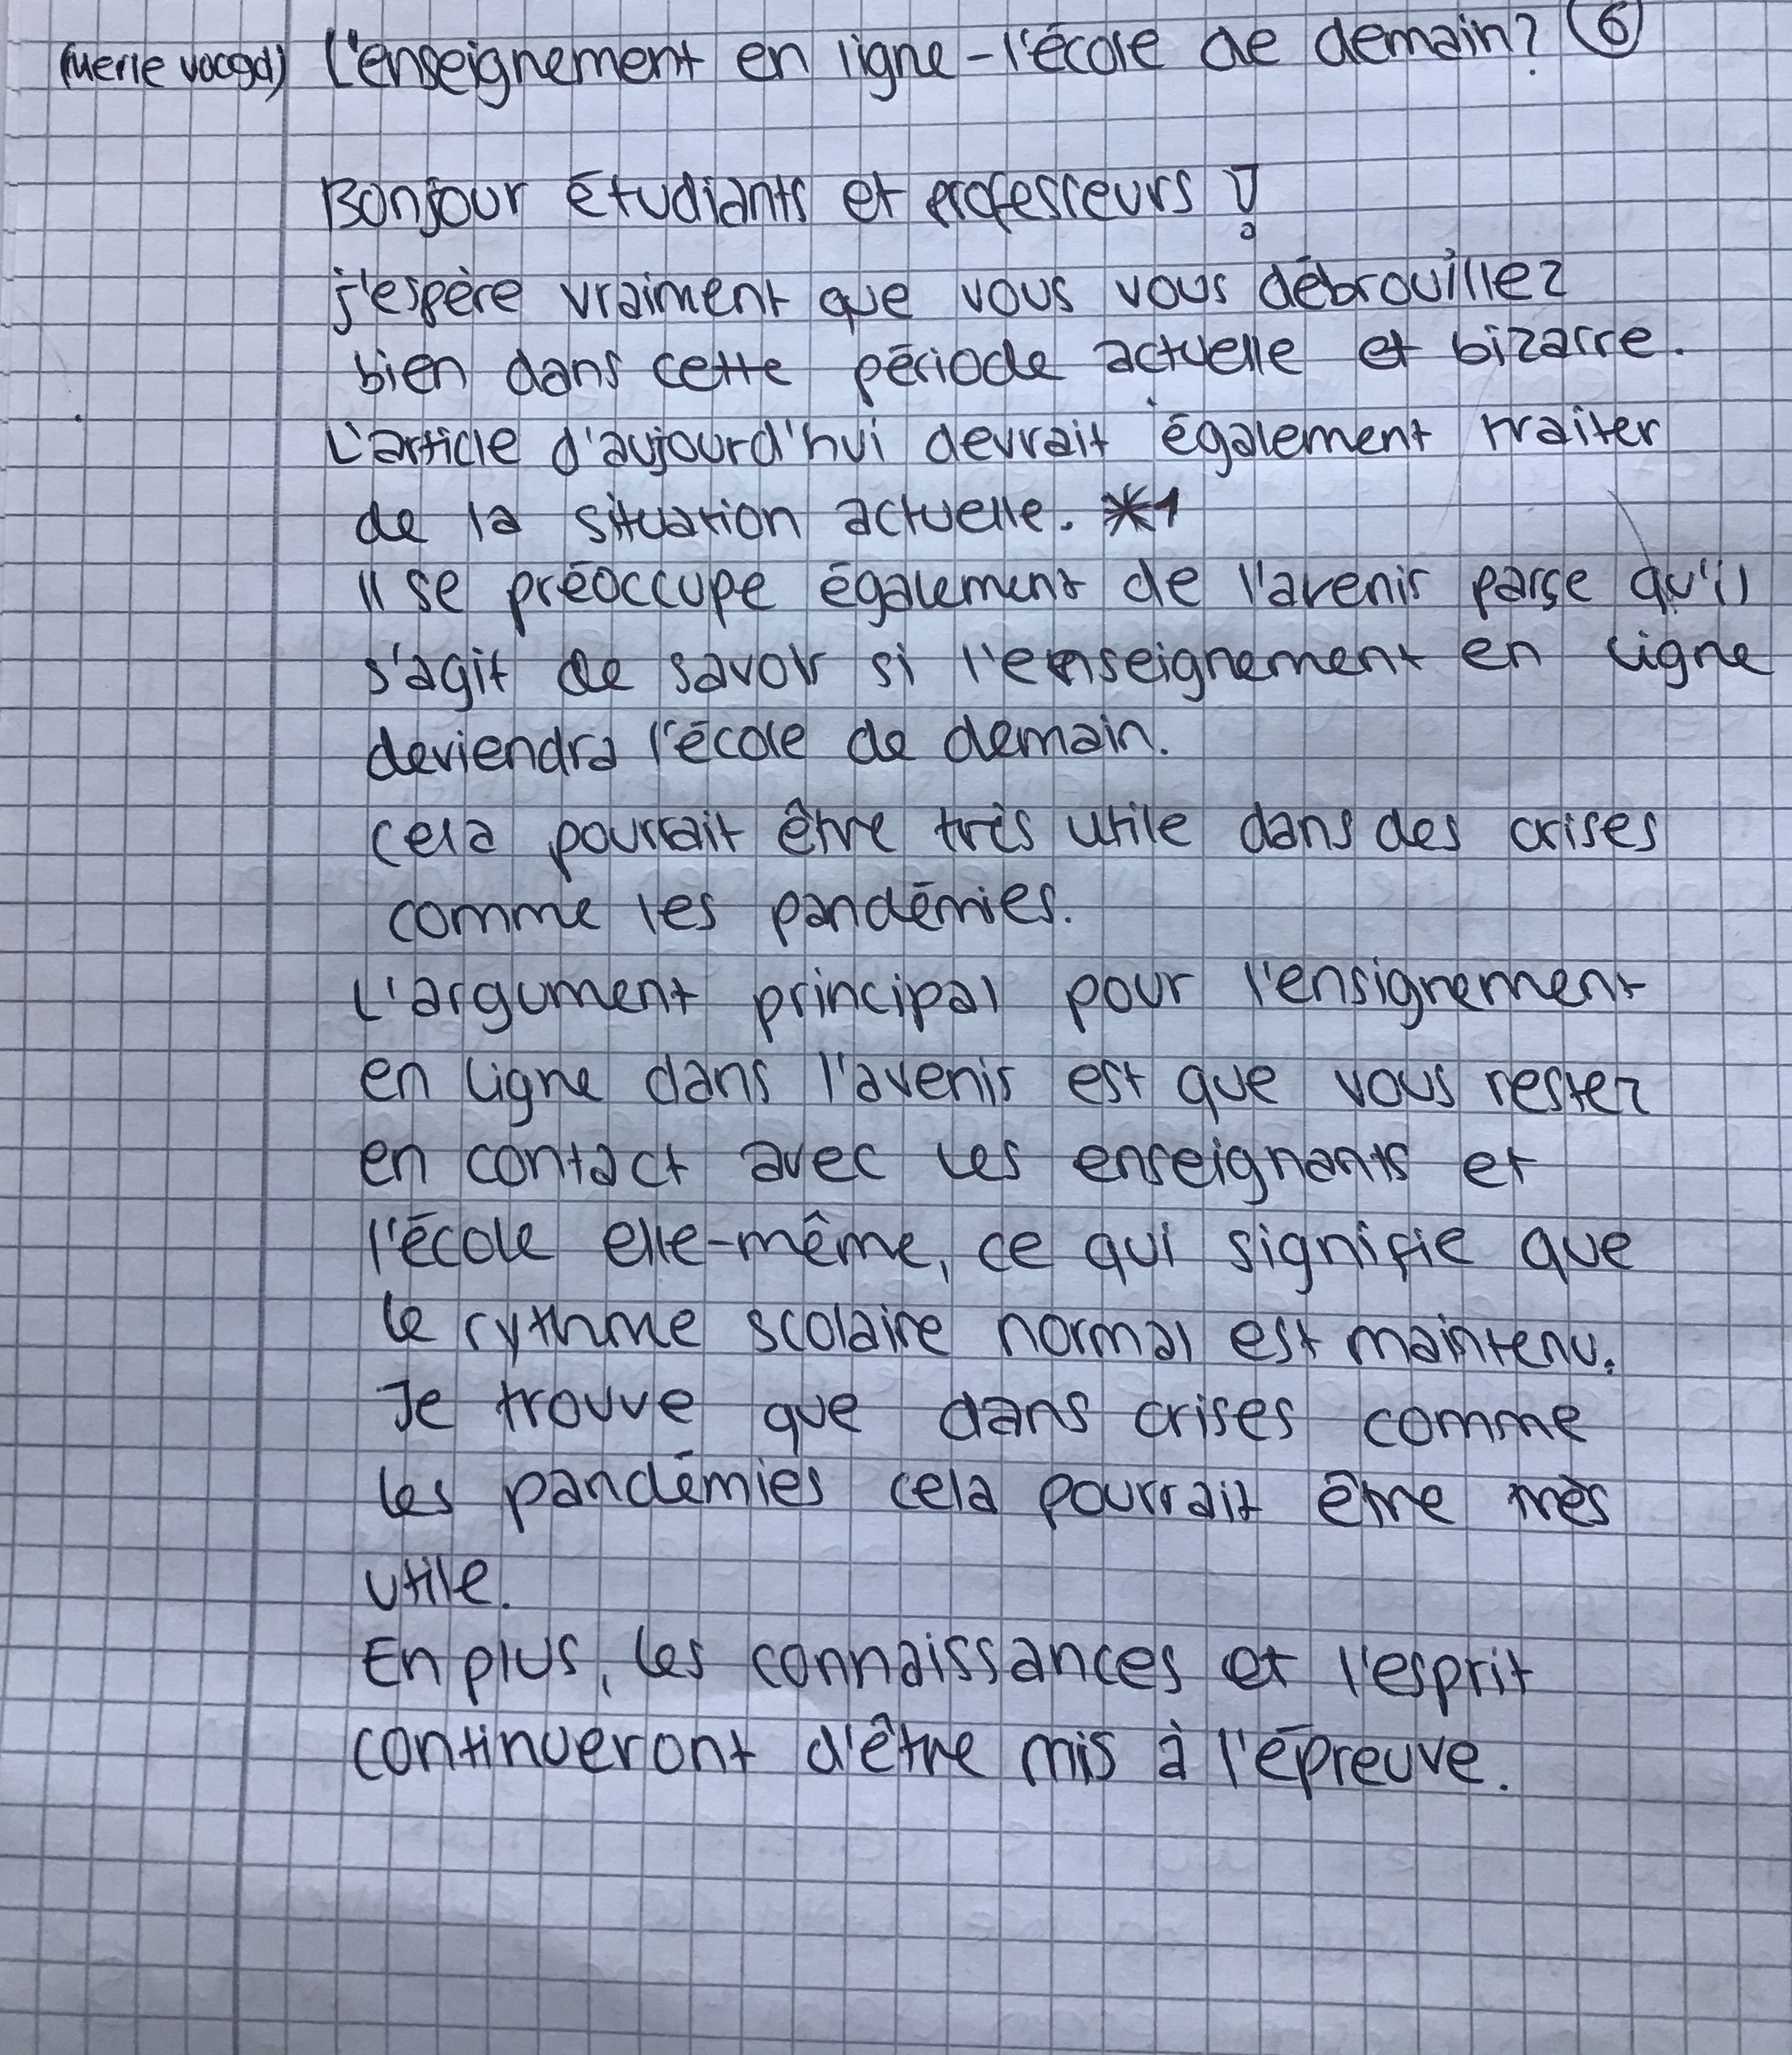 (Merle Vocgd) L'enseignement en ligne - l'école de demain? 6
Bonjour étudiants et professeurs !
j'espère vraiment que vous vous débrouillez
bien dans cette période actuelle et bizarre.
L'article d'aujourd'hui devrait également traiter
de la situation actuelle. *1
Il se préoccupe également de l'avenir parçe qu'il
s'agit de savoir si l'enseignement en ligne
deviendra l'école de demain.
cela pourrait être très utile dans des crises
comme les pandémies.
L'argument principal pour l'ensignement
en ligne dans l'avenir est que vous restez
en contact avec les enseignants et
l'école elle-même, ce qui signifie que
le rythme scolaire normal est maintenu.
Je trouve que dans crises comme
les pandémies cela pourrait être très
utile.
En plus, les connaissances et l'esprit
continueront d'être mis à l'épreuve.